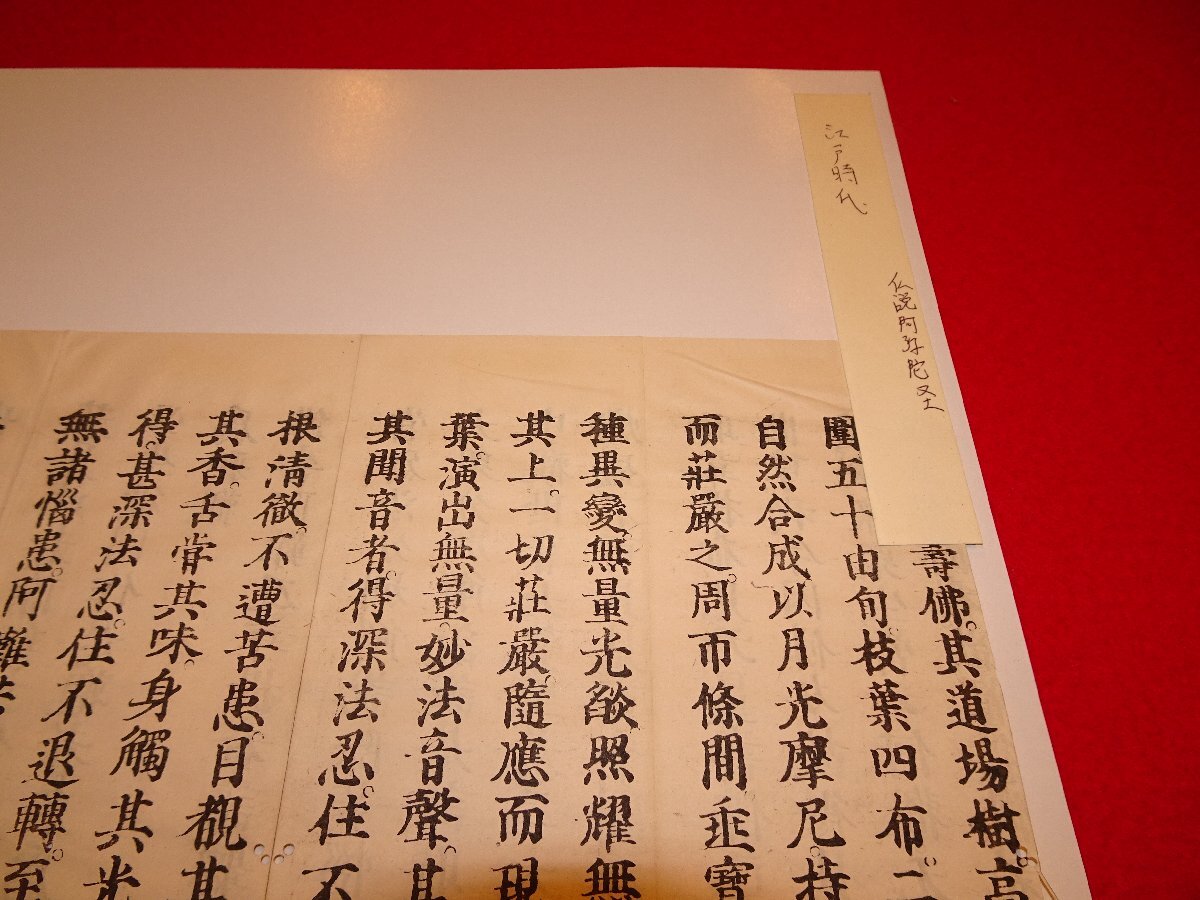 江戸時代
仏説阿弥陀経
壽佛。其道場樹。高
圍五十由旬。枝葉四布。二
自然合成以月光摩尼。持
而莊嚴之。周帀條間垂寶
種異變。無量光燄。照耀無
其上。一切莊嚴隨應而現
葉。演出無量妙法音聲。其
其聞音者。得深法忍。住不
根清徹。不遭苦患。目覩其
其香。舌甞其味。身觸其光
得。甚深法忍。住不退轉。至
無諸惱患。阿難若